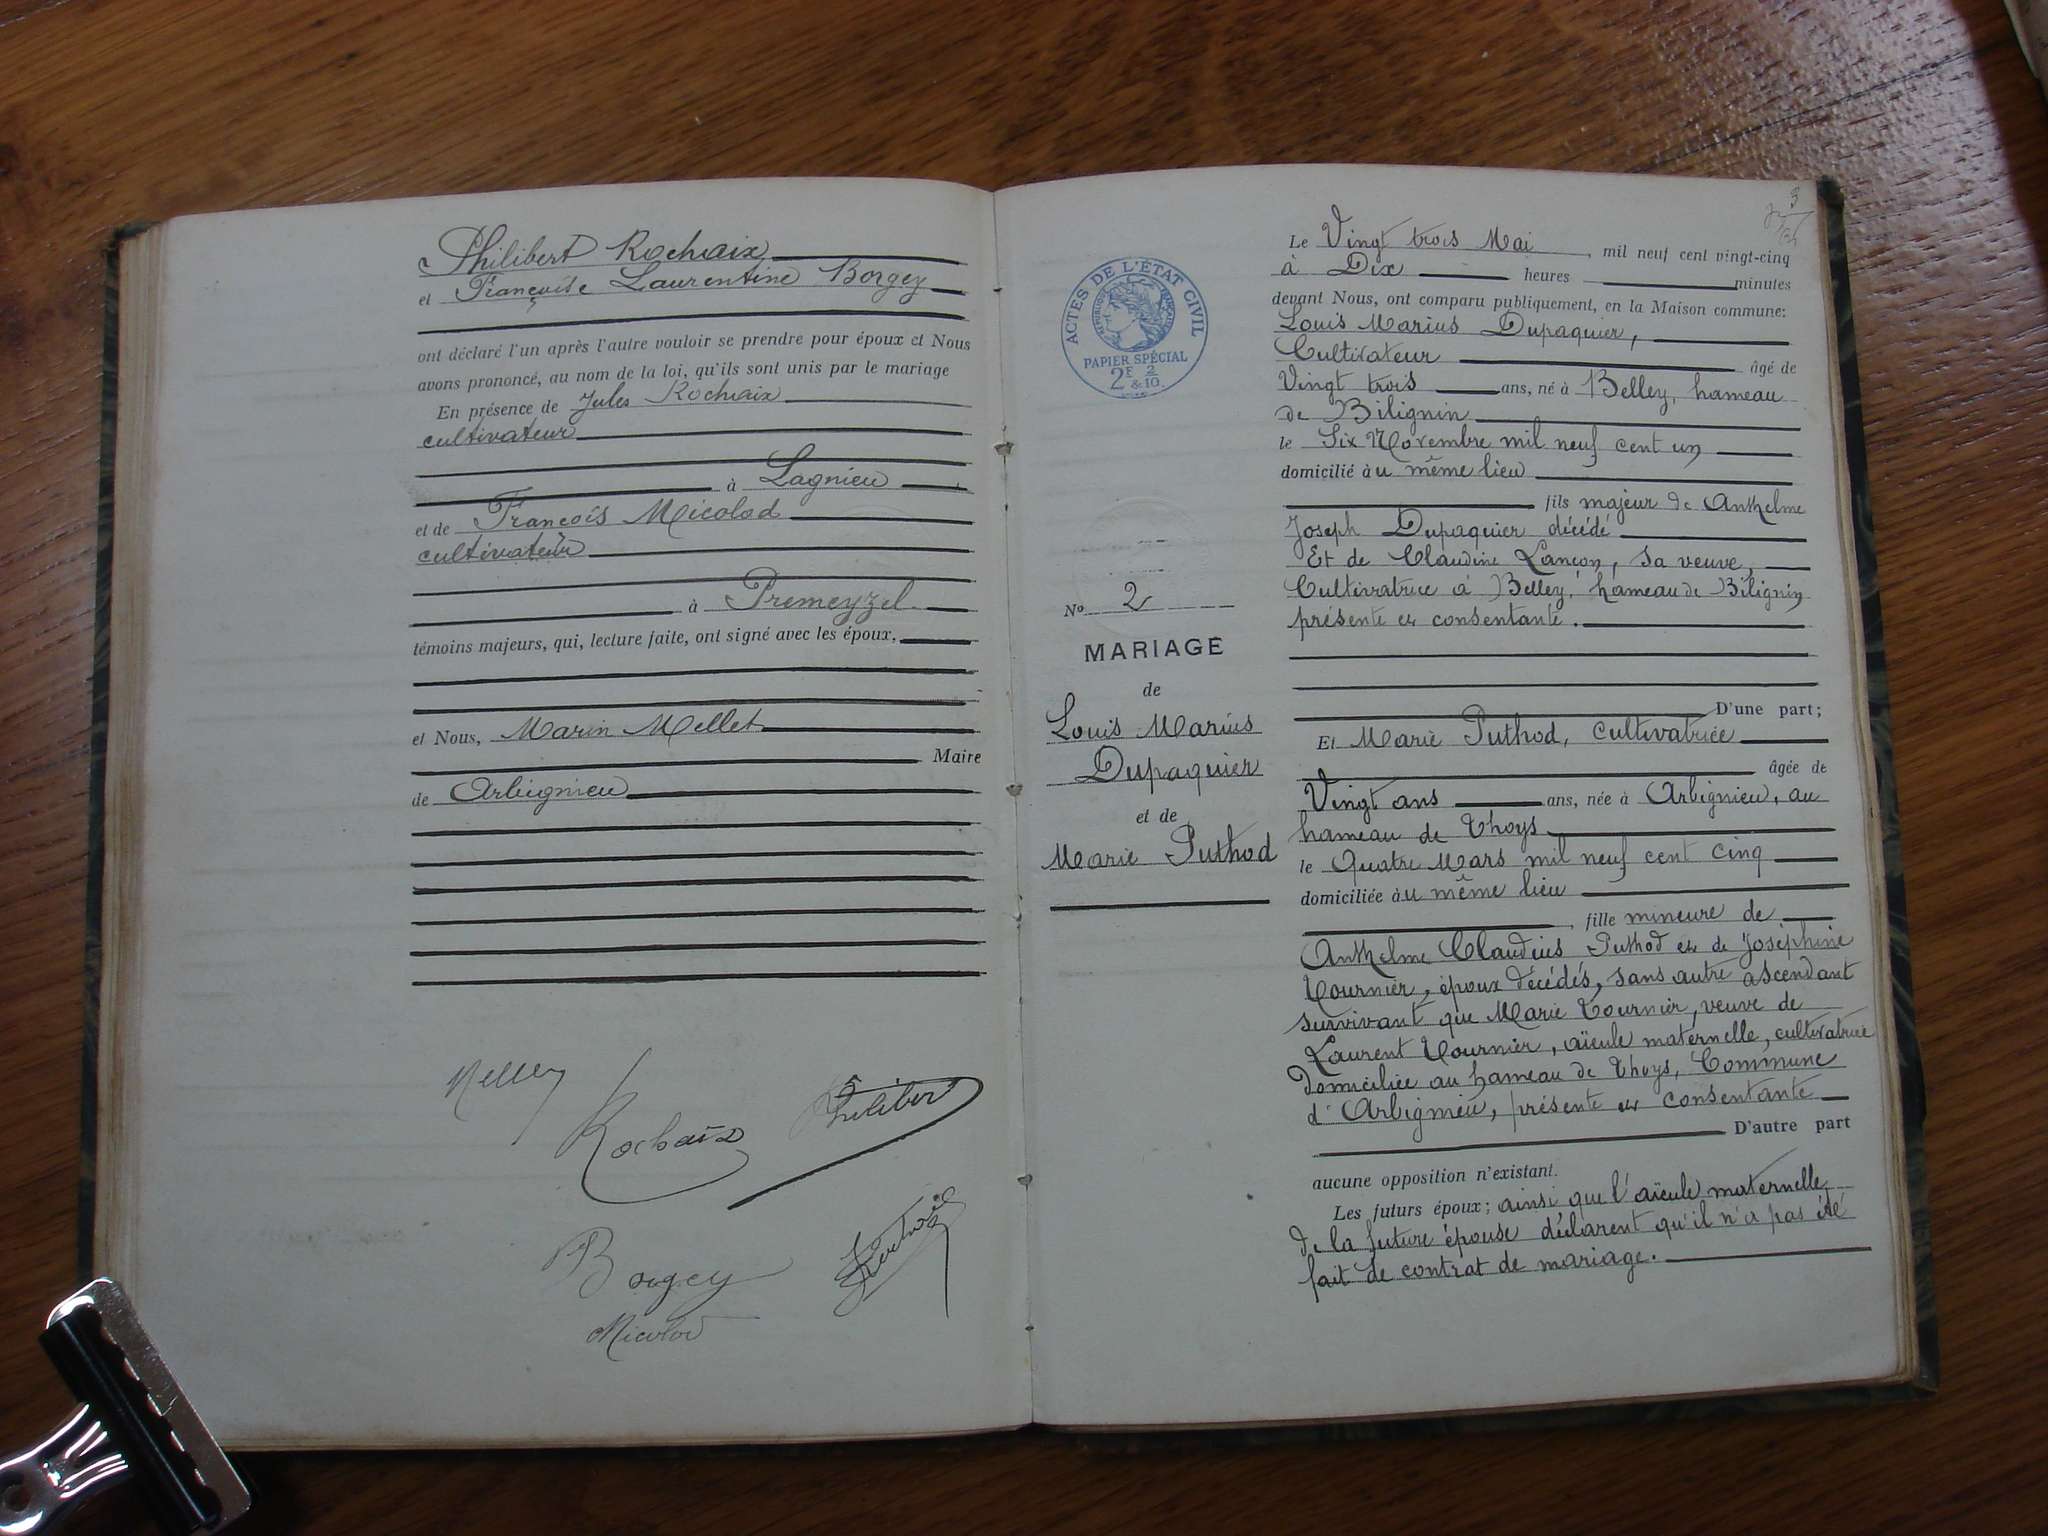 Philibert Rochaix
et Françoise Laurentine Borgey
ont déclaré l'un après l'autre vouloir se prendre pour époux et Nous
avons prononcé, au nom de la loi, qu'ils sont unis par le mariage
En présence de Jules Rochaix
cultivateur
à Lagnieu
et de François Micolod
cultivateur
à Premeyzel
témoins majeurs, qui, lecture faite, ont signé avec les époux,
et Nous, Marin Mellet
Maire
de Arbignieu
Rochaix
Philibert
Borgey
Micolod
3
ACTES DE L'ÉTAT CIVIL
RÉPUBLIQUE FRANÇAISE
PAPIER SPÉCIAL
2F 2
& 10.
No 2
MARIAGE
de
Louis Marius
Dupaquier
et de
Marie Puthod
Le Vingt trois Mai, mil neuf cent vingt-cinq
à Dix heures minutes
devant Nous, ont comparu publiquement, en la Maison commune:
Louis Marius Dupaquier,
Cultivateur âgé de
Vingt trois ans, né à Belley, hameau
de Bilignin
le Six Novembre mil neuf cent un
domicilié àu même lieu
fils majeur de Anthelme
Joseph Dupaquier décédé
Et de Claudine Lançon, sa veuve,
Cultivatrice à Belley, hameau de Bilignin
présente et consentante.
D'une part;
Et Marie Puthod, cultivatrice
âgée de
Vingt ans ans, née à Arbignieu, au
hameau de Thoys
le Quatre Mars mil neuf cent cinq
domiciliée àu même lieu
, fille mineure de
Anthelme Claudius Puthod et de Joséphine
Tournier, époux décédés, sans autre ascendant
survivant que Marie Tournier, veuve de
Laurent Tournier, aïeule maternelle, cultivatrice
domiciliée au hameau de Thoys, Commune
d'Arbignieu, présente et consentante
D'autre part
aucune opposition n'existant.
Les futurs époux; ainsi que l'aïeule maternelle
de la future épouse déclarent qu'il n'a pas été
fait de contrat de mariage.